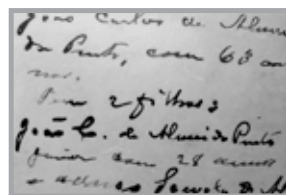 João Carlos de Almei
da Pinto, com 63 an
nos.
Tem 2 filhos:
João C. de Almeida Pinto
Junior com 28 annos
e de Al